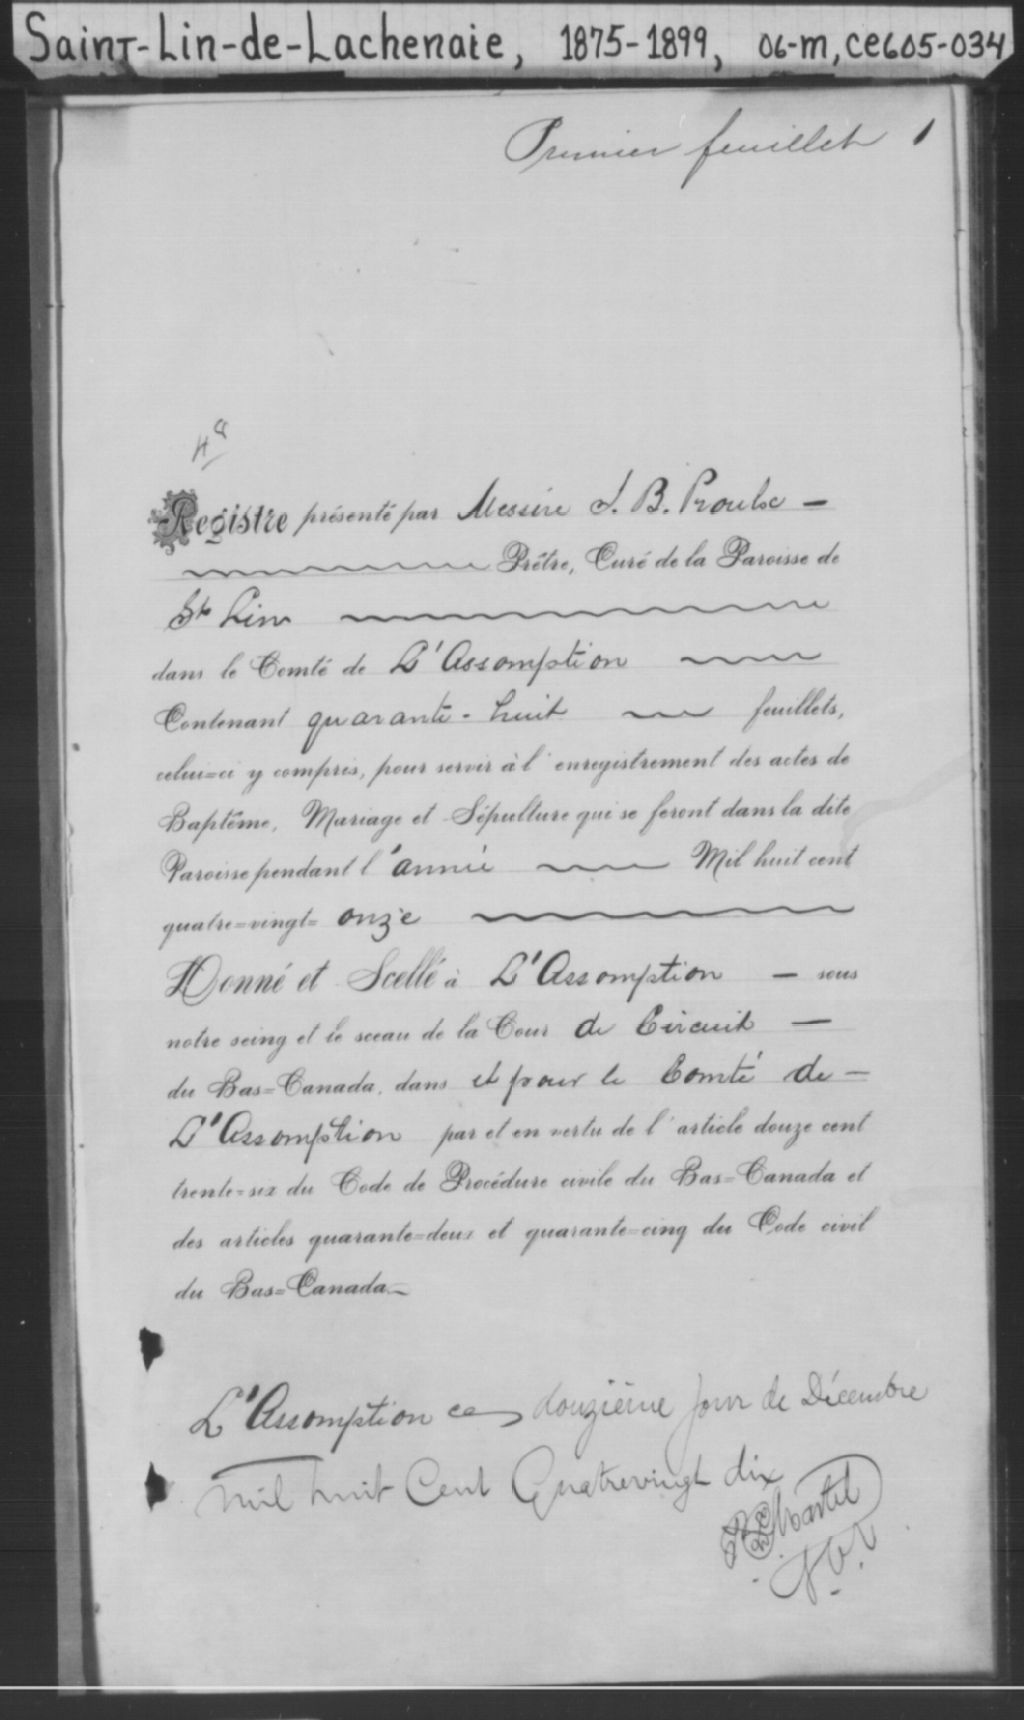 Saint-Lin-de-Lachenaie, 1875-1899, 06-M, CE605-034
Premier feuillet 1
Registre présenté par Messire J. B. Proulx —
Prêtre, Curé de la Paroisse de
St Lin
dans le Comté de L'Assomption
Contenant quarante-huit feuillets,
celui=ci y compris, pour servir à l'enregistrement des actes de
Baptême, Mariage et Sépulture qui se feront dans la dite
Paroisse pendant l'année Mil huit cent
quatre=vingt= onze
Donné et Scellé à L'Assomption — sous
notre seing et le sceau de la Cour de Circuit —
du Bas=Canada, dans et pour le Comté de —
L'Assomption par et en vertu de l'article douze cent
trente=six du Code de Procédure civile du Bas=Canada et
des articles quarante=deux et quarante=cinq du Code civil
du Bas=Canada —
L'Assomption ce douzième jour de Décembre
mil huit Cent Quatrevingt dix
Martel